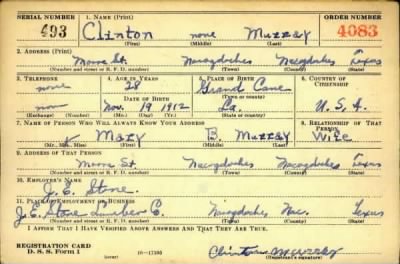 SERIAL NUMBER 1. NAME (Print) ORDER NUMBER
493 Clinton none Murray 4083
(First) (Middle) (Last)
2. ADDRESS (Print)
Moore St. Nacogdoches Nacogdoches Texas
(Number and street or R. F. D. number) (Town) (County) (State)
3. TELEPHONE 4. AGE IN YEARS 5. PLACE OF BIRTH 6. COUNTRY OF CITIZENSHIP
none 28 Grand Cane
DATE OF BIRTH (Town or county)
none Nov. 19 1912 La. U. S. A.
(Exchange) (Number) (Mo.) (Day) (Yr.) (State or country)
7. NAME OF PERSON WHO WILL ALWAYS KNOW YOUR ADDRESS 8. RELATIONSHIP OF THAT PERSON
Mary B. Murray Wife
(Mr., Mrs., Miss) (First) (Middle) (Last)
9. ADDRESS OF THAT PERSON
Moore St. Nacogdoches Nacogdoches Texas
(Number and street or R. F. D. number) (Town) (County) (State)
10. EMPLOYER'S NAME
J. E. Stone
11. PLACE OF EMPLOYMENT OR BUSINESS
J. E. Stone Lumber C. Nacogdoches Nac. Texas
(Number and street or R. F. D. number) (Town) (County) (State)
I AFFIRM THAT I HAVE VERIFIED ABOVE ANSWERS AND THAT THEY ARE TRUE.
REGISTRATION CARD
D. S. S. Form 1 16—17105 Clinton Murray
(over) (Registrant's signature)